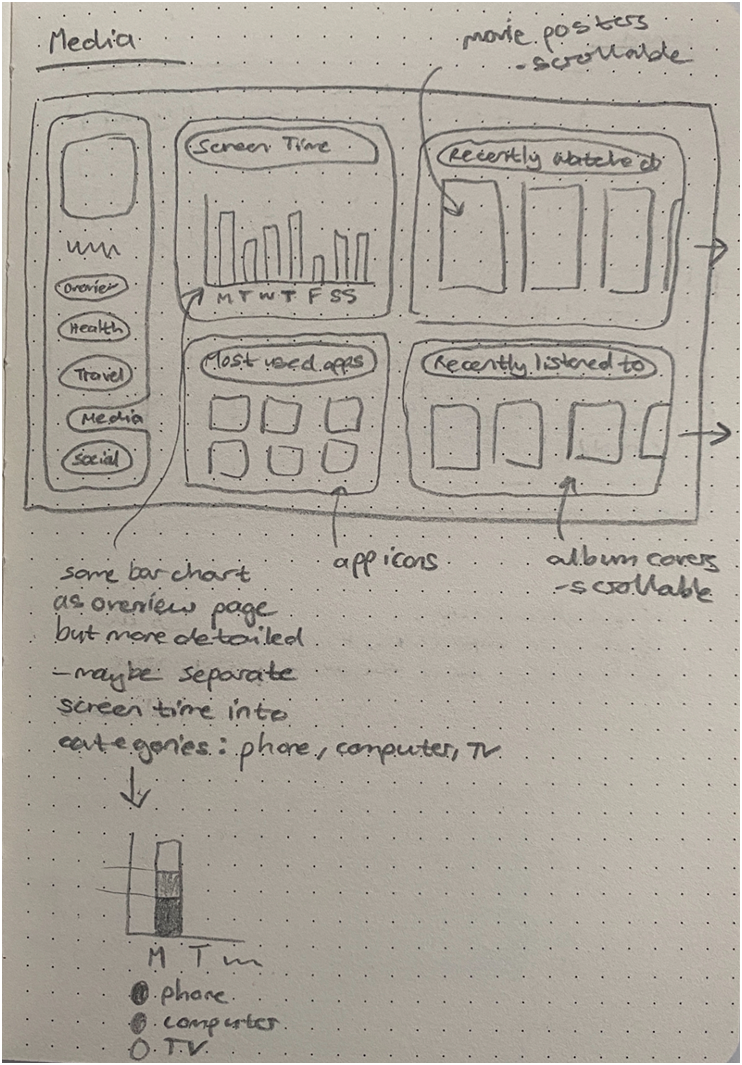 Media
movie posters
- scrollable
Screen Time
M T W T F S S
Recently watched
Overview
Health
Travel
Media
Social
Most used apps
Recently listened to
app icons
album covers
- scrollable
same bar chart
as overview page
but more detailed
- maybe separate
screen time into
categories: phone, computer, TV
M T
phone
computer
TV